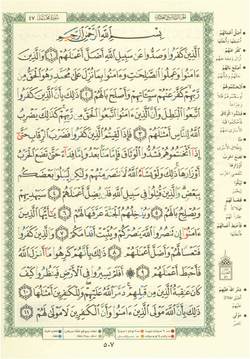 بِسْمِ ٱللَّهِ ٱلرَّحْمَٰنِ ٱلرَّحِيمِ
ٱلَّذِينَ كَفَرُوا۟ وَصَدُّوا۟ عَن سَبِيلِ ٱللَّهِ أَضَلَّ أَعْمَٰلَهُمْ ١ وَٱلَّذِينَ
ءَامَنُوا۟ وَعَمِلُوا۟ ٱلصَّٰلِحَٰتِ وَءَامَنُوا۟ بِمَا نُزِّلَ عَلَىٰ مُحَمَّدٍ وَهُوَ ٱلْحَقُّ مِن
رَّبِّهِمْ كَفَّرَ عَنْهُمْ سَيِّـَٔاتِهِمْ وَأَصْلَحَ بَالَهُمْ ٢ ذَٰلِكَ بِأَنَّ ٱلَّذِينَ كَفَرُوا۟
ٱتَّبَعُوا۟ ٱلْبَٰطِلَ وَأَنَّ ٱلَّذِينَ ءَامَنُوا۟ ٱتَّبَعُوا۟ ٱلْحَقَّ مِن رَّبِّهِمْ كَذَٰلِكَ يَضْرِبُ
ٱللَّهُ لِلنَّاسِ أَمْثَٰلَهُمْ ٣ فَإِذَا لَقِيتُمُ ٱلَّذِينَ كَفَرُوا۟ فَضَرْبَ ٱلرِّقَابِ حَتَّىٰٓ
إِذَآ أَثْخَنتُمُوهُمْ فَشُدُّوا۟ ٱلْوَثَاقَ فَإِمَّا مَنًّۢا بَعْدُ وَإِمَّا فِدَآءً حَتَّىٰ تَضَعَ ٱلْحَرْبُ
أَوْزَارَهَا ذَٰلِكَ وَلَوْ يَشَآءُ ٱللَّهُ لَٱنتَصَرَ مِنْهُمْ وَلَٰكِن لِّيَبْلُوَا۟ بَعْضَكُم
بِبَعْضٍ وَٱلَّذِينَ قُتِلُوا۟ فِى سَبِيلِ ٱللَّهِ فَلَن يُضِلَّ أَعْمَٰلَهُمْ ٤ سَيَهْدِيهِمْ
وَيُصْلِحُ بَالَهُمْ ٥ وَيُدْخِلُهُمُ ٱلْجَنَّةَ عَرَّفَهَا لَهُمْ ٦ يَٰٓأَيُّهَا ٱلَّذِينَ
ءَامَنُوٓا۟ إِن تَنصُرُوا۟ ٱللَّهَ يَنصُرْكُمْ وَيُثَبِّتْ أَقْدَامَكُمْ ٧ وَٱلَّذِينَ كَفَرُوا۟
فَتَعْسًا لَّهُمْ وَأَضَلَّ أَعْمَٰلَهُمْ ٨ ذَٰلِكَ بِأَنَّهُمْ كَرِهُوا۟ مَآ أَنزَلَ ٱللَّهُ
فَأَحْبَطَ أَعْمَٰلَهُمْ ٩ أَفَلَمْ يَسِيرُوا۟ فِى ٱلْأَرْضِ فَيَنظُرُوا۟ كَيْفَ
كَانَ عَٰقِبَةُ ٱلَّذِينَ مِن قَبْلِهِمْ دَمَّرَ ٱللَّهُ عَلَيْهِمْ وَلِلْكَٰفِرِينَ أَمْثَٰلُهَا ١٠
ذَٰلِكَ بِأَنَّ ٱللَّهَ مَوْلَى ٱلَّذِينَ ءَامَنُوا۟ وَأَنَّ ٱلْكَٰفِرِينَ لَا مَوْلَىٰ لَهُمْ ١١
٥٠٧